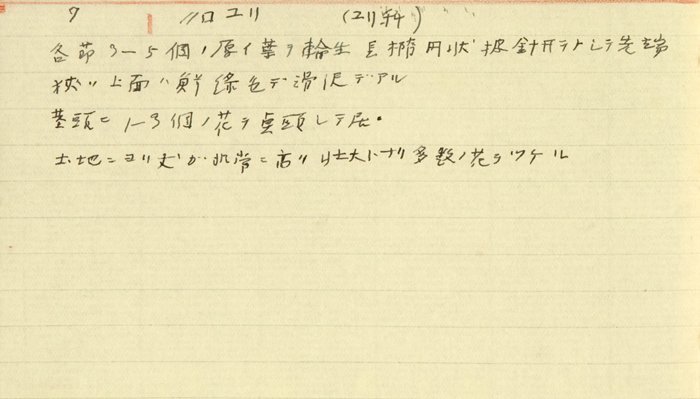 7 クロユリ (ユリ科)
各節3-5個ノ厚イ葉ヲ輪生 長楕円状披針形ヲナシテ先端
狭ク上面ハ鮮緑色デ滑沢デアル
茎頭ニ1-3個ノ花ヲ点頭シテ居。
土地ニヨリ丈が非常ニ高ク壮大トナリ多数ノ花ヲツケル